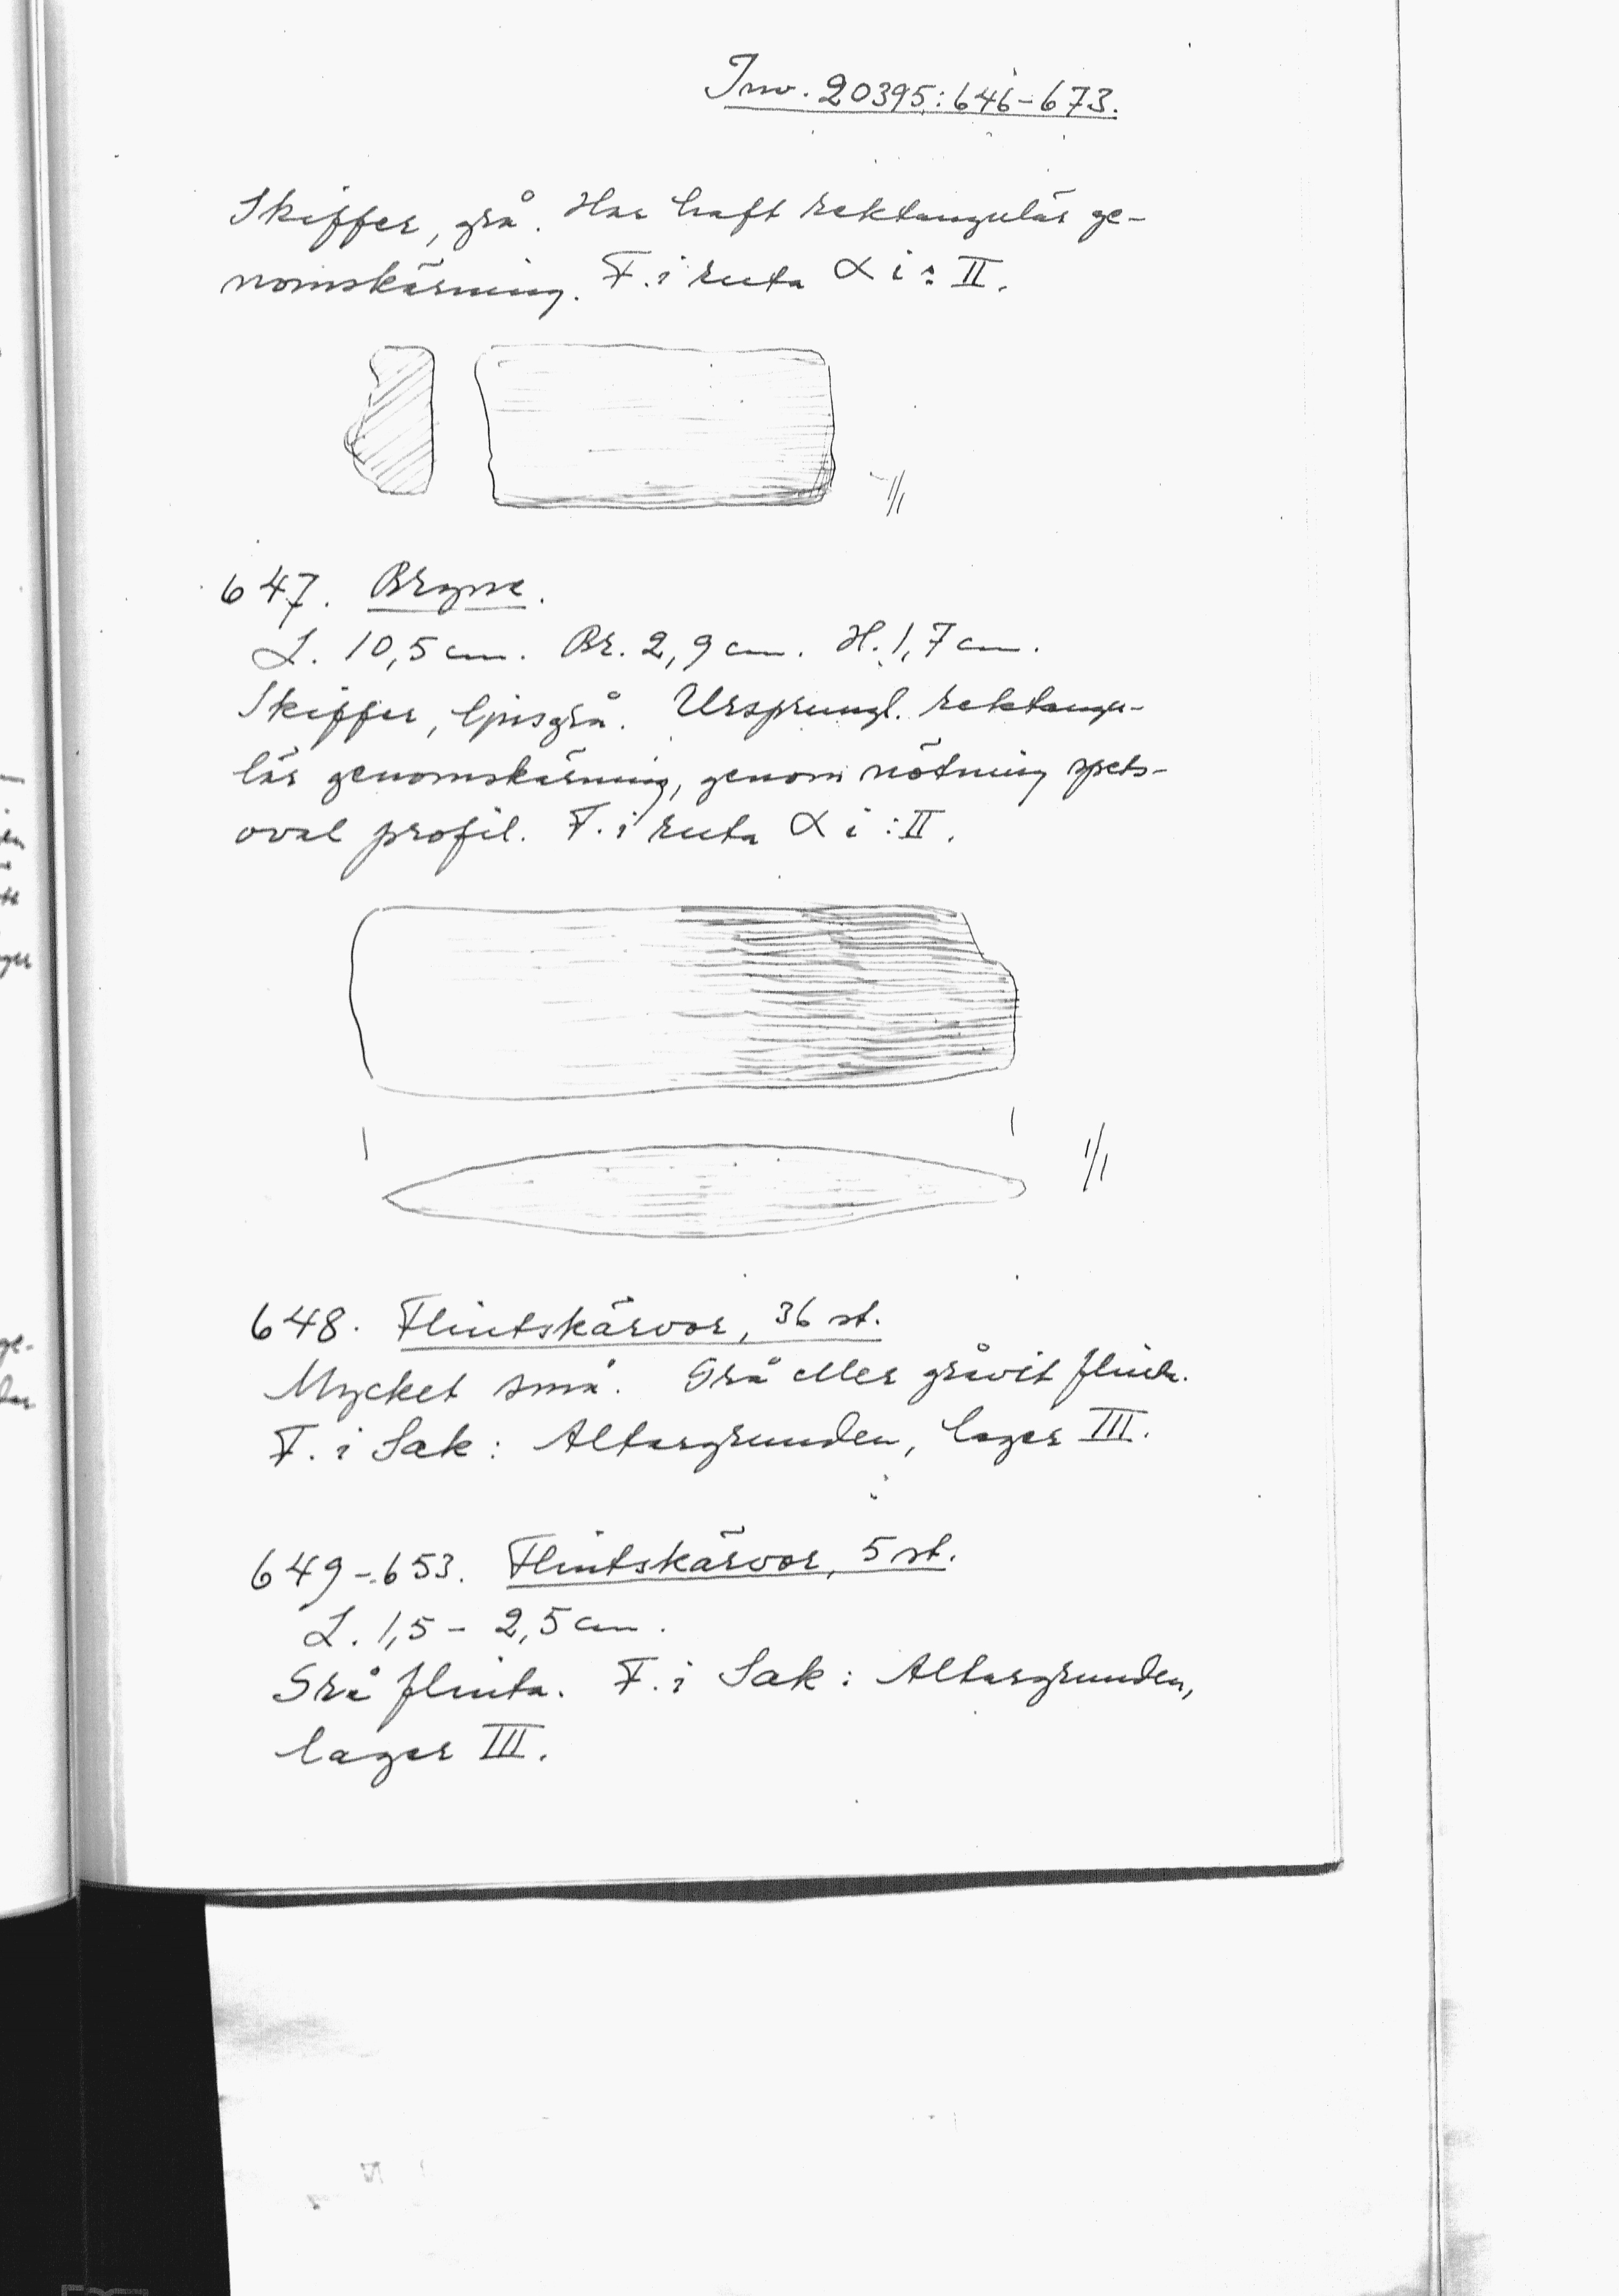 Inv. 20395:646-673.
Skiffer, grå. Har haft rektangulär ge-
nomskärning. F. i ruta α i : II.
1/1
647. Bryne.
L. 10,5 cm. Br. 2,9 cm. H. 1,7 cm.
Skiffer, ljusgrå. Ursprungl. rektangu-
lär genomskärning, genom nötning spets-
oval profil. F. i ruta α i : II.
1/1
648. Flintskärvor, 36 st.
Mycket små. Grå eller gråvit flinta.
F. i Sak: Altargrunden, lager III.
649-653. Flintskärvor, 5 st.
L. 1,5 - 2,5 cm.
Grå flinta. F. i Sak: Altargrunden,
lager III.